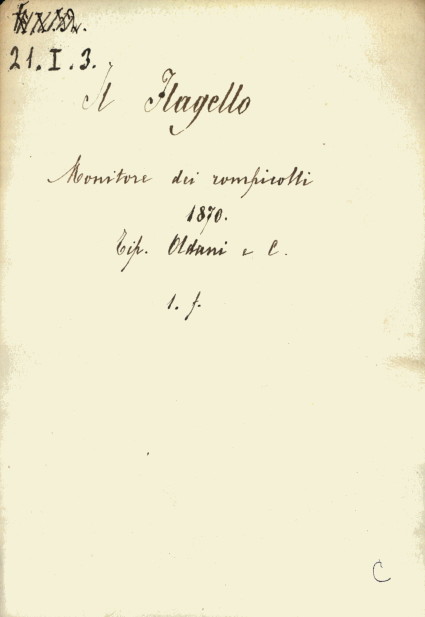 21.I.3.
Il Flagello
Monitore dei rompicolli
1870.
Tip. Oldani e C.
1. f.
C